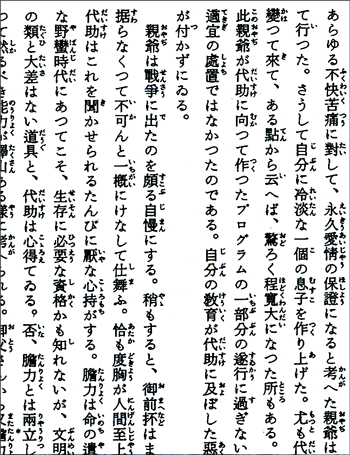 あらゆる不快苦痛に對して、永久愛情の保證になると考へた親爺は
て行つた。さうして自分に冷淡な一個の息子を作り上げた。尤も代
變つて來て、ある點から云へば、驚ろく程寛大になつた所もある。
此親爺が代助に向つて作つたプログラムの一部分の遂行に過ぎない
適宜の處置ではなかつたのである。自分の敎育が代助に及ぼした惡
が付かずにゐる。
親爺は戰爭に出たのを頗る自慢にする。稍もすると、御前抔はま
据らなくつて不可んと一概にけなして仕舞ふ。恰も度胸が人間至上
代助はこれを聞かせられるたんびに厭な心持がする。膽力は命の遣
な野蠻時代にあつてこそ、生存に必要な資格かも知れないが、文明
の類と大差はない道具と、代助は心得てゐる。否、膽力とは兩立し
て然るべき能力が澤山ある樣に考へられる。